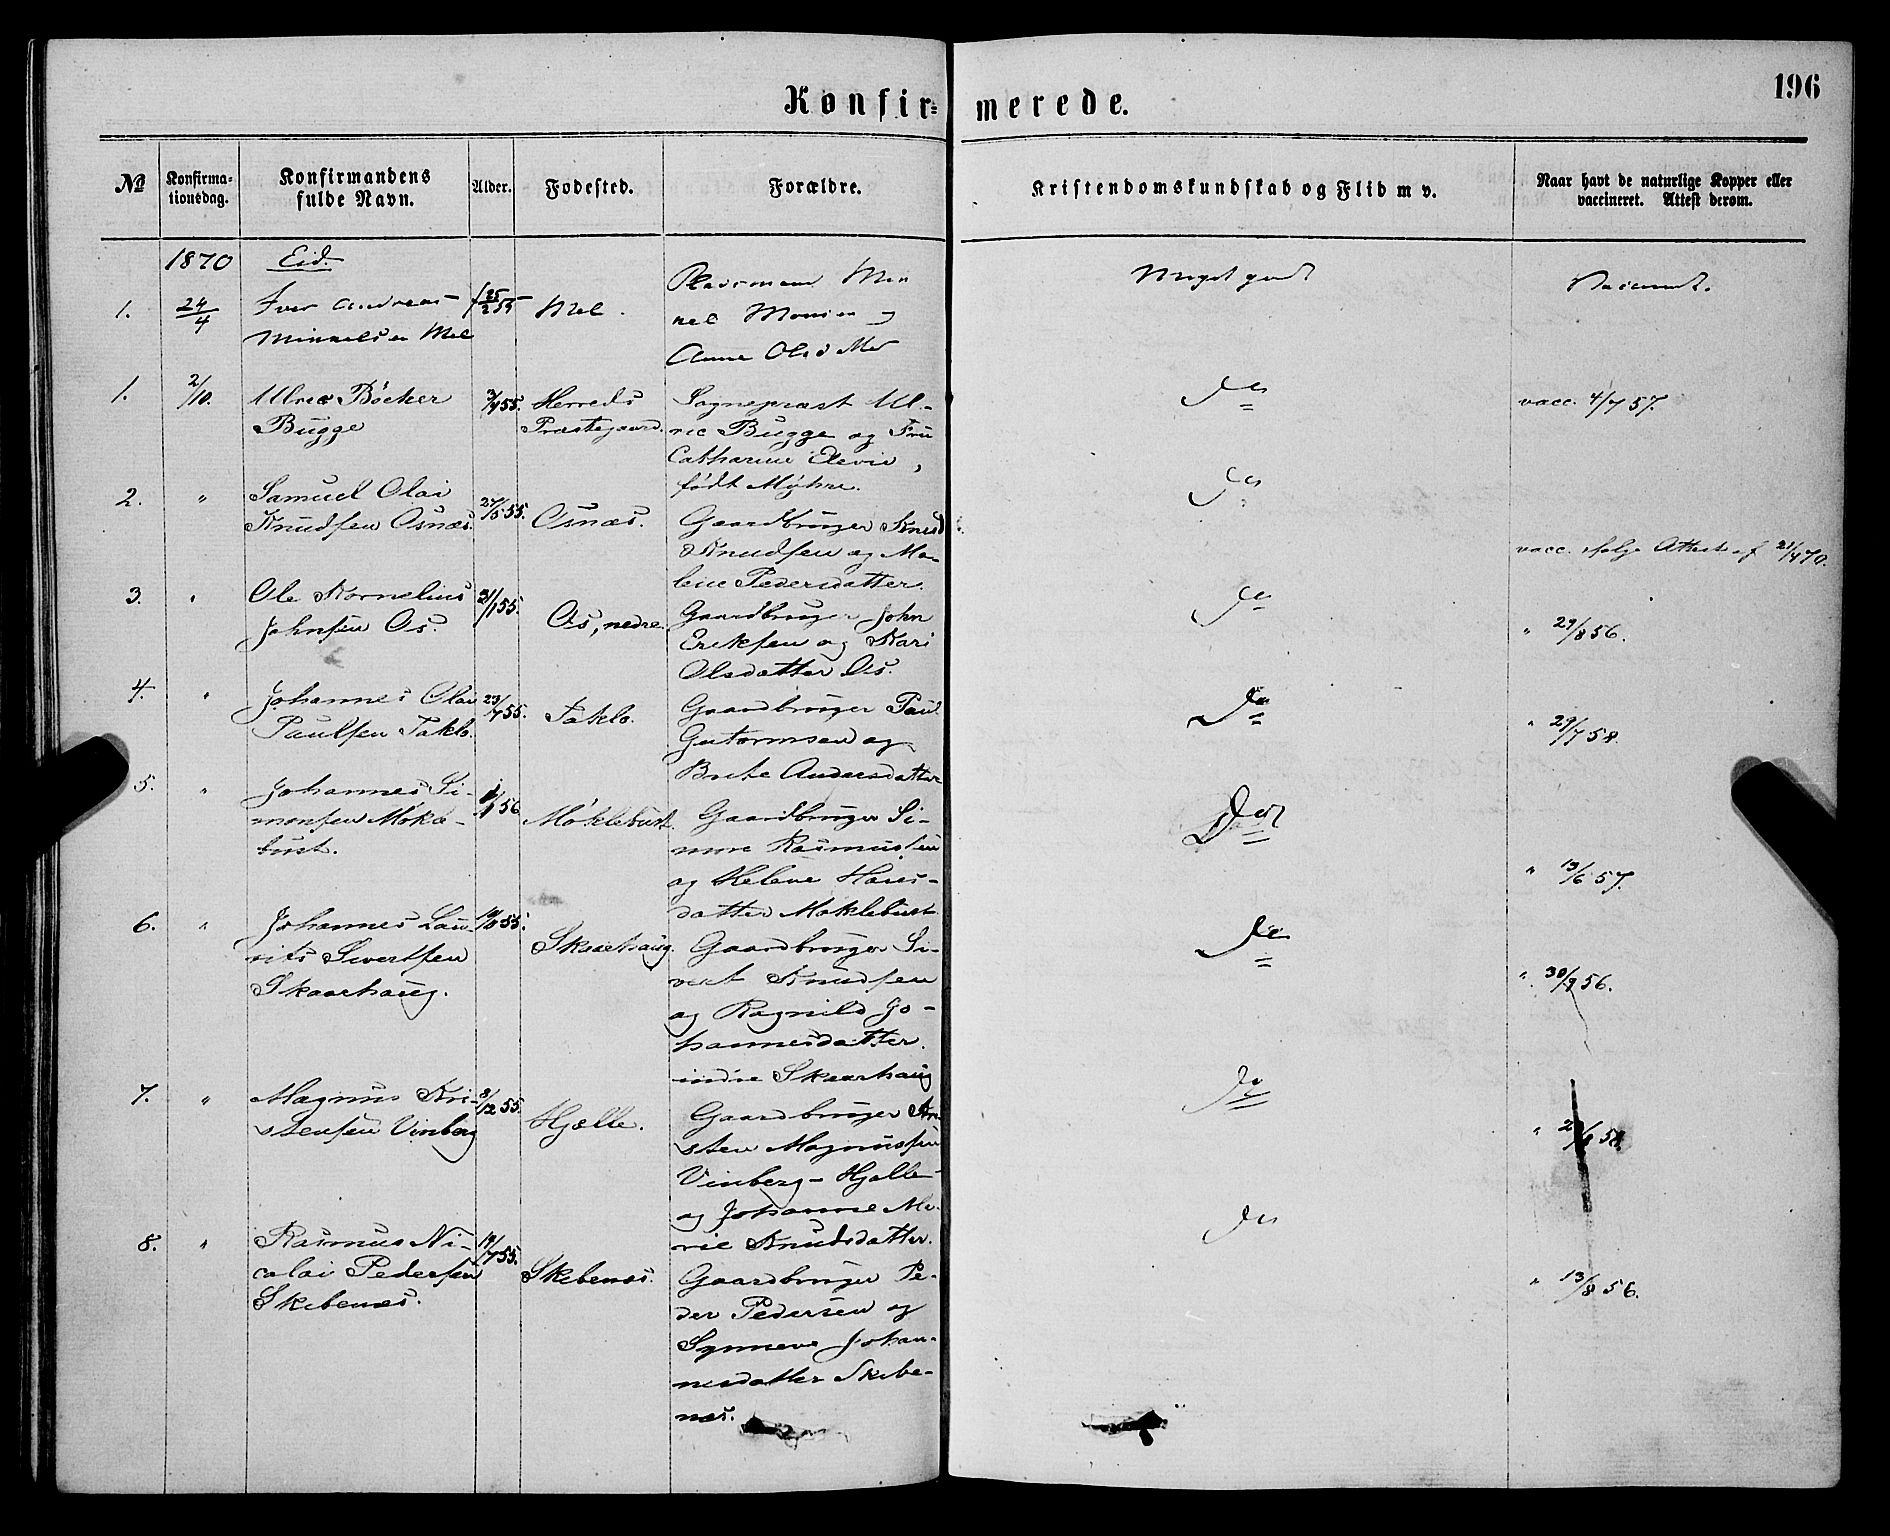 Konfirmerede.
196
№
Konfirmationsdag.
Konfirmandens fulde Navn.
Alder.
Fodested.
Forældre.
Kristendomskundskab og Flid m v.
Naar havt de naturlige Kopper eller vaccineret. Attest derom.
1870 Eid.
1.
24/4
Iver Andreas
Minkelsen Mel
f 25/2 55
Mel.
Pladsmand Min
kel Monsen og
Anne Olsd Mel
Meget godt
Vaccinert.
1.
2/10.
Ulric Böcker
Bugge
55.
Herreds
Præstegaard.
Sognepræst Ul-
ric Bugge og Fru
Catharine Elevie,
født Myhre.
Do
vacc. 4/7 57.
2.
"
Samuel Olai
Knudsen Osnæs.
27/5 55.
Osnæs.
Gaardbruger Knud
Knudsen og Ma-
lene Pedersdatter.
Do
vacc. ifølge Attest af 21/4 70.
3.
"
Ole Kornelius
Johnsen Os.
31/1 55.
Os, nedre.
Gaardbruger John
Eriksen og Kari
Olsdatter Os.
Do
" 29/8 56.
4.
"
Johannes Olai
Paulsen Taklo.
23/7 55.
Taklo.
Gaardbruger Paul
Gutormsen og
Brite Andersdatter
Do
" 29/7 58.
5.
"
Johannes Si-
monsen Mökle-
bust.
1/1 56
Möklebust.
Gaardbruger Si-
mon Rasmussen
og Helene Hans-
datter Moklebust.
Do
" 19/6 57.
6.
"
Johannes Lau-
rits Sivertsen
Skaarhaug.
10/8 55.
Skaarhaug.
Gaardbruger Si-
vert Knudsen
og Ragnild Jo-
hannesdatter.
indre Skaarhaug
Do
" 30/9 56.
7.
"
Magnus Kri-
stensen Vinberg
8/12 55.
Hjelle.
Gaardbruger Kri-
sten Magnussen
Vinberg - Hjelle
og Johanne Ma-
rie Knudsdatter.
Do
" 58.
8.
"
Rasmus Ni-
colai Pedersen
Skibenes.
19/7 55.
Skibenes.
Gaardbruger Pe-
der Pedersen og
Synneve Johan-
nesdatter Skibe-
nes.
Do
" 13/8 56.